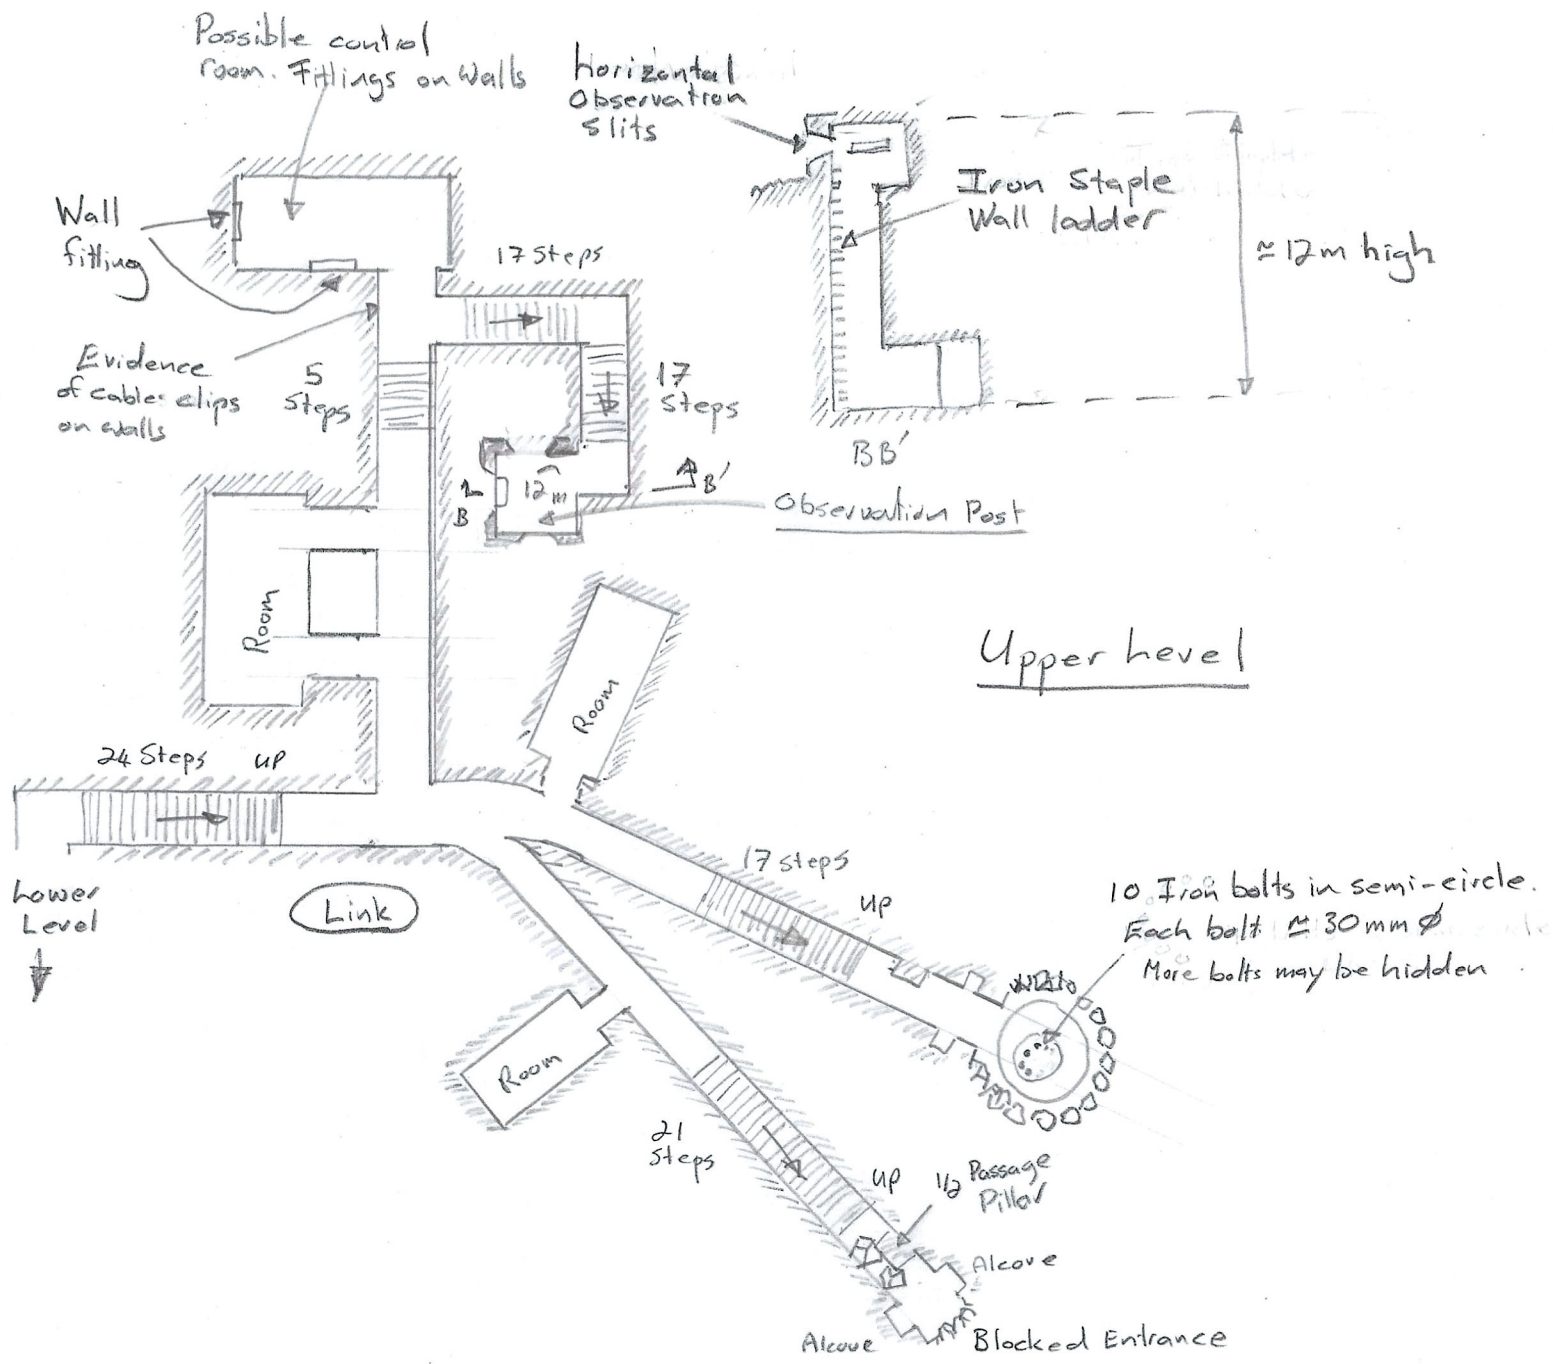 Possible control
room. Fittings on walls
Horizontal
Observation
Slits
Iron Staple
Wall ladder
≃ 12m high
BB'
Wall
fitting
17 Steps
Evidence
of cable clips
on walls
5
Steps
17
Steps
12m
B
B'
Observation Post
Room
Room
Upper Level
24 Steps up
Lower
Level
Link
17 steps
up
10 Iron bolts in semi-circle.
Each bolt ≃ 30mm Ø
More bolts may be hidden
Room
21
Steps
up
1/2 Passage
Pillar
Alcove
Alcove
Blocked Entrance